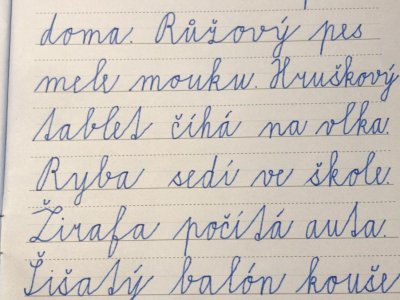 doma. Růžový pes
mele mouku. Hruškový
tablet číhá na vlka.
Ryba sedí ve škole.
Žirafa počítá auta.
Šišatý balón kouše